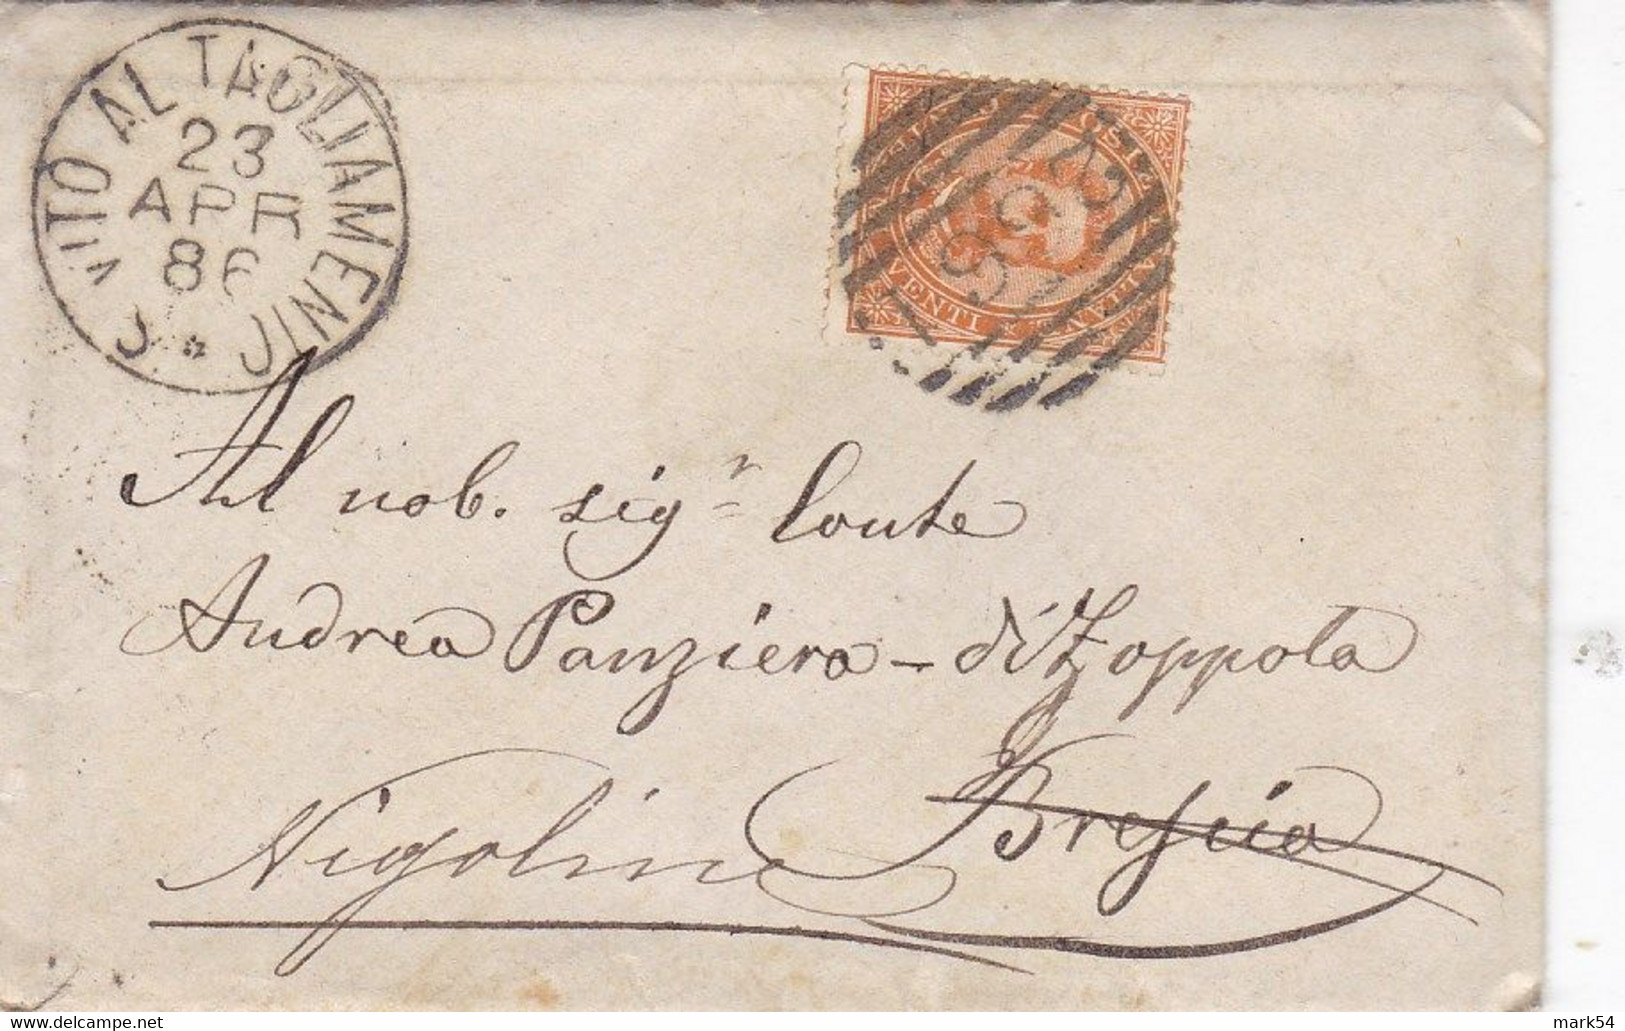 S. VITO AL TAGLIAMENTO
23
APR
86
VENTI
Al nob. sigr Conte
Andrea Panziera - di Zoppola
Brescia
Nigoline
mark54